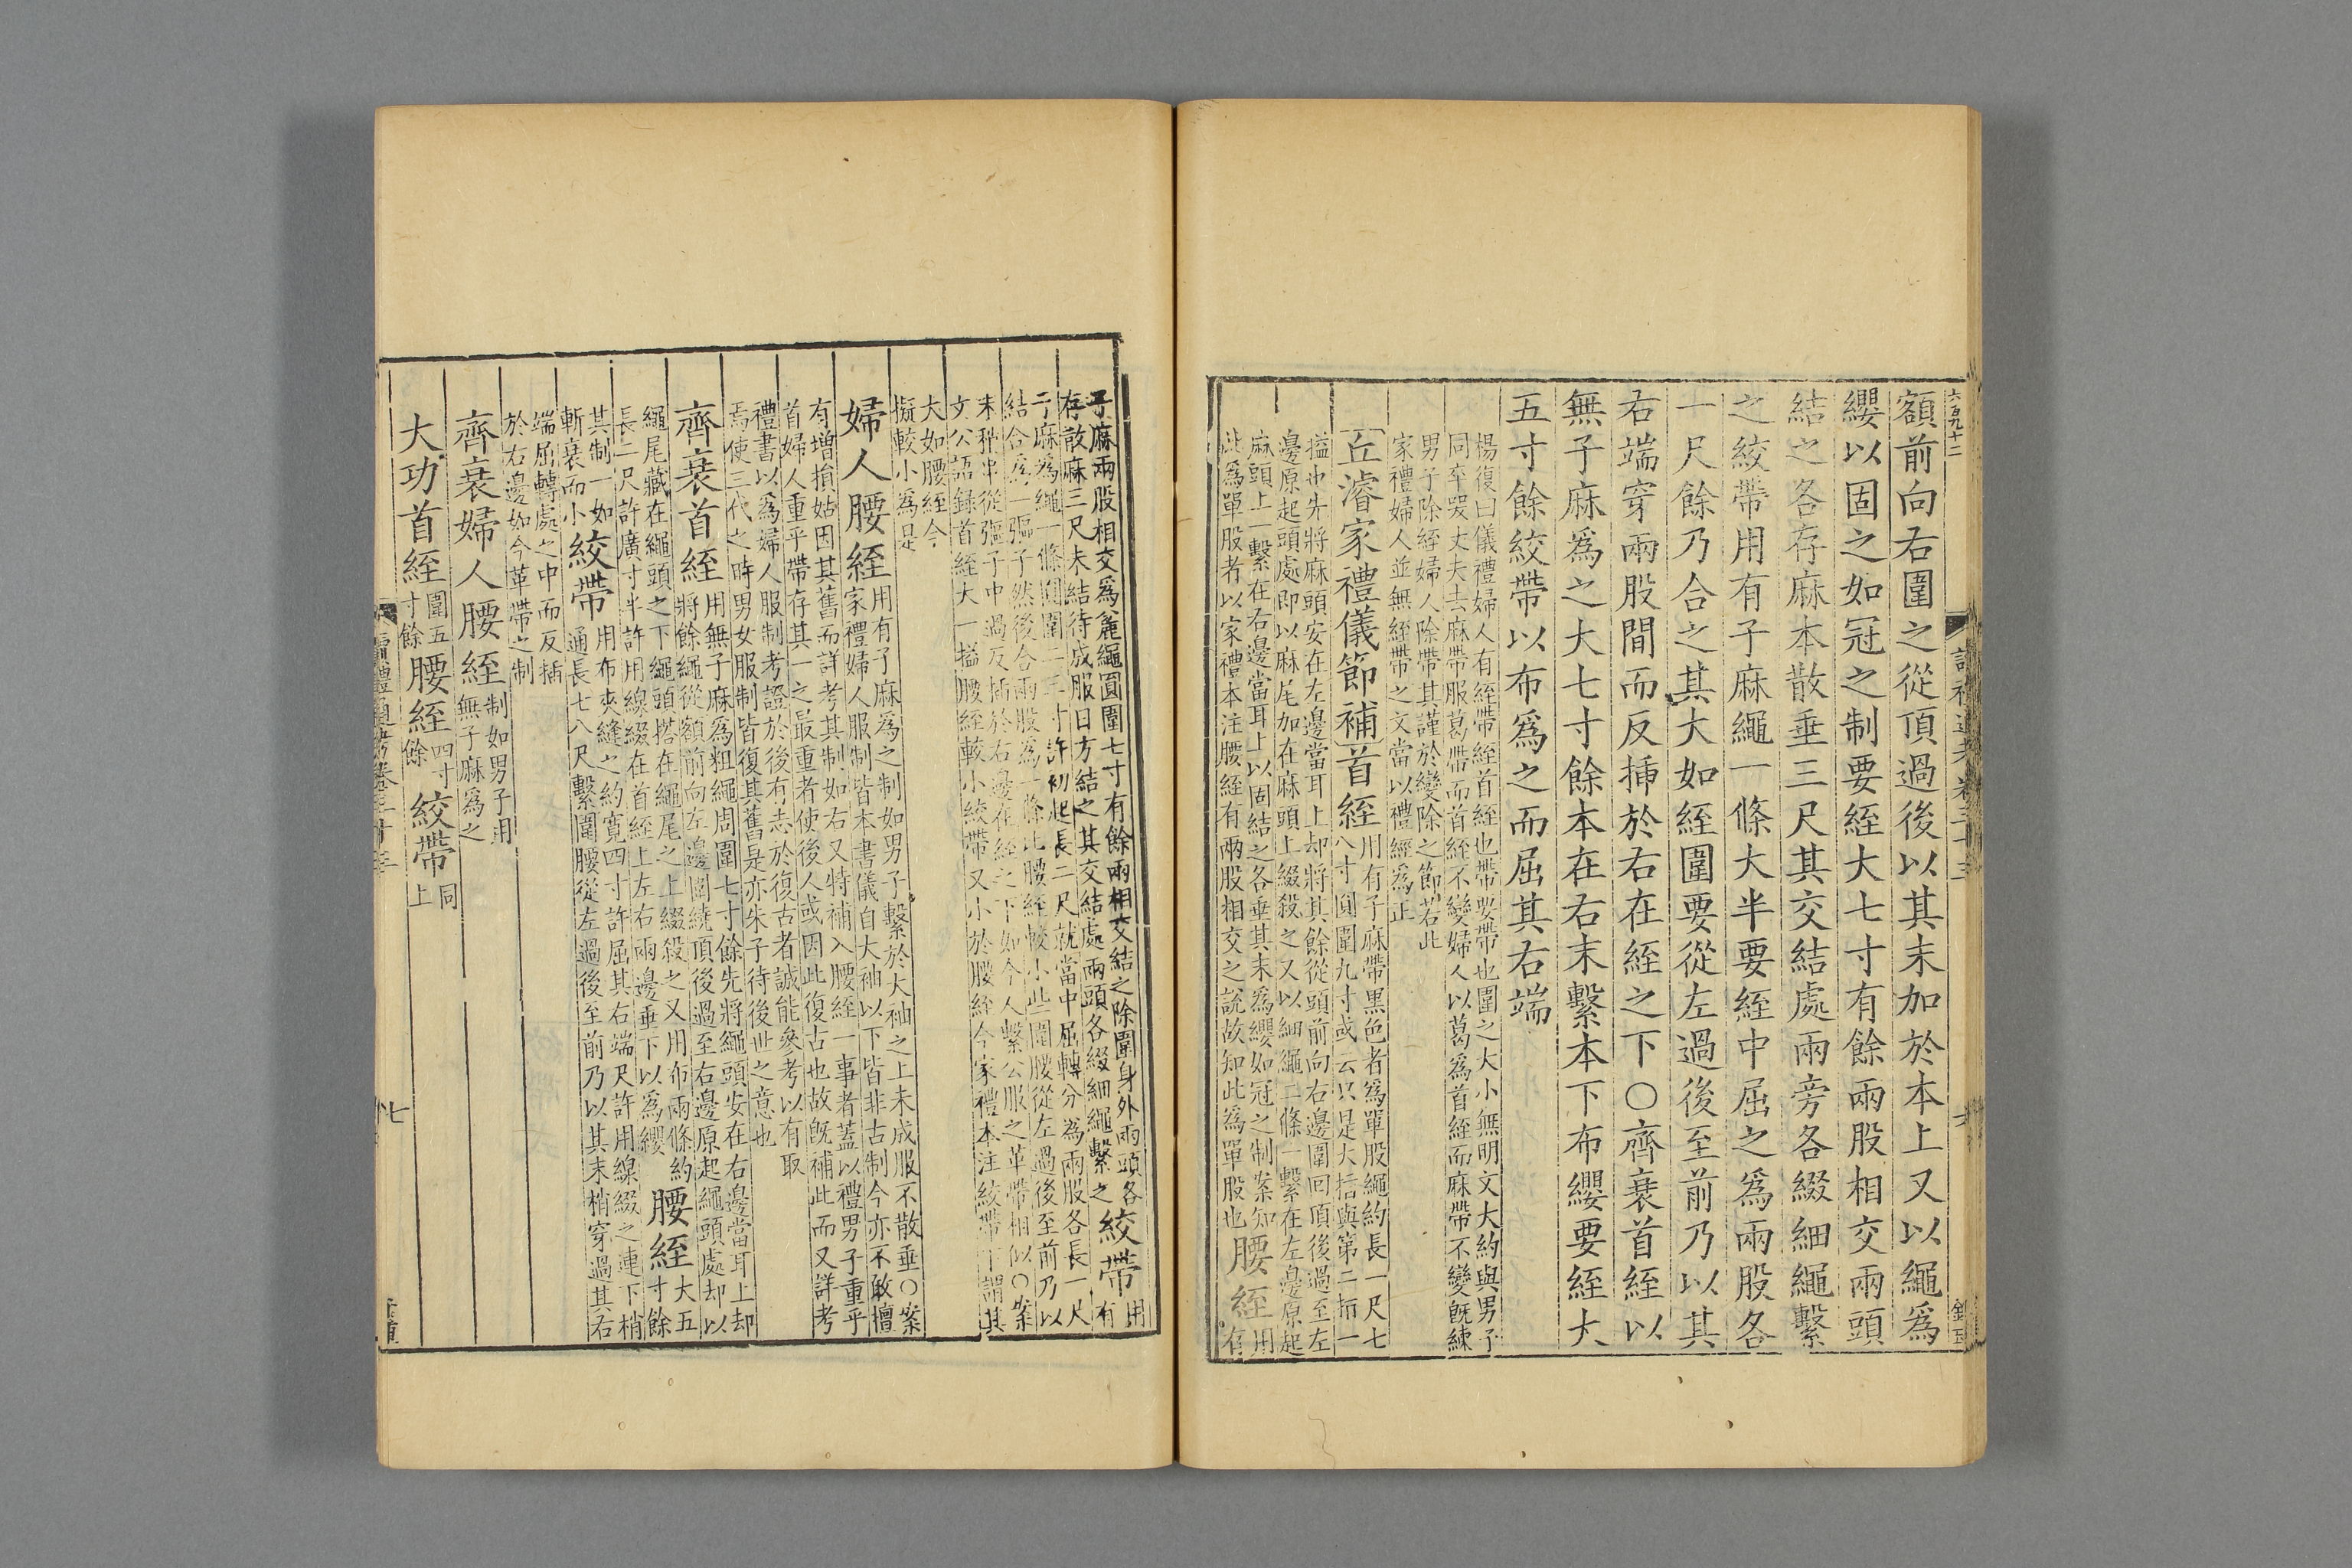 六百九十二
讀禮通考卷三十三
額前向右圍之從頂過後以其末加於本上又以繩爲
纓以固之如冠之制要絰大七寸有餘兩股相交兩頭
結之各存麻本散垂三尺其交結處兩旁各綴細繩繫
之絞帶用有子麻繩一條大半要絰中屈之爲兩股各
一尺餘乃合之其大如絰圍要從左過後至前乃以其
右端穿兩股間而反揷於右在絰之下〇齊衰首絰以
無子麻爲之大七寸餘本在右末繫本下布纓要絰大
五寸餘絞帶以布爲之而屈其右端
楊復曰儀禮婦人有絰帶絰首絰也帶要帶也圍之大小無明文大約與男子
同卒哭丈夫去麻帶服葛帶而首絰不變婦人以葛爲首絰而麻帶不變旣練
男子除絰婦人除帶其謹於變除之節若此
家禮婦人並無絰帶之文當以禮經爲正
丘濬家禮儀節補首絰
用有子麻帶黑色者爲單股繩約長一尺七
八寸圓圍九寸或云只是大拈與第二指一
搤也先將麻頭安在左邊當耳上却將其餘從頭前向右邊圍回頂後過至左
邊原起頭處即以麻尾加在麻頭上綴殺之又以細繩二條一繫在左邊原起
麻頭上一繫在右邊當耳上以固結之各垂其末爲纓如冠之制案知
此爲單股者以家禮本注腰絰有兩股相交之説故知此爲單股也
腰絰
用
有
子麻兩股相交爲麄繩圓圍七寸有餘兩相交結之除圍身外兩頭各
存散麻三尺未結待成服日方結之其交結處兩頭各綴細繩繫之
絞帶
用
有
子麻爲繩一條圓圍二三寸許初起長二尺就當中屈轉分爲兩股各長一尺
結合爲一彄子然後合兩股爲一條比腰絰較小些圍腰從左過後至前乃以
末稍串從彄子中過反插於右邊在絰之下如今人繫公服之革帶相似〇案
文公語録首絰大一搤腰絰較小絞帶又小於腰絰今家禮本注絞帶下謂其
大如腰絰今
擬較小爲是
婦人腰絰
用有子麻爲之制如男子繫於大袖之上未成服不散垂〇案
家禮婦人服制皆本書儀自大袖以下皆非古制今亦不敢擅
有增損姑因其舊而詳考其制如右又特補入腰絰一事者蓋以禮男子重乎
首婦人重乎帶存其一之最重者使後人或因此復古也故旣補此而又詳考
禮書以爲婦人服制考證於後有志於復古者誠能參考以有取
焉使三代之時男女服制皆復其舊是亦朱子待後世之意也
齊衰首絰
用無子麻爲粗繩周圍七寸餘先將繩頭安在右邊當耳上却
將餘繩從額前向左邊圍繞頂後過至右邊原起繩頭處却以
繩尾藏在繩頭之下繩頭搭在繩尾之上綴殺之又用布兩條約
長二尺許廣寸半許用線綴在首絰上左右兩邊垂下以爲纓
腰絰
大五
寸餘
其制一如
斬衰而小
絞帶
用布夾縫之約寛四寸許屈其右端尺許用線綴之連下梢
通長七八尺繫圍腰從左過後至前乃以其末梢穿過其右
端屈轉處之中而反插
於右邊如今革帶之制
齊衰婦人腰絰
制如男子用
無子麻爲之
大功首絰
圍五
寸餘
腰絰
四寸
餘
絞帶
同
上
讀禮通考卷三十三
七